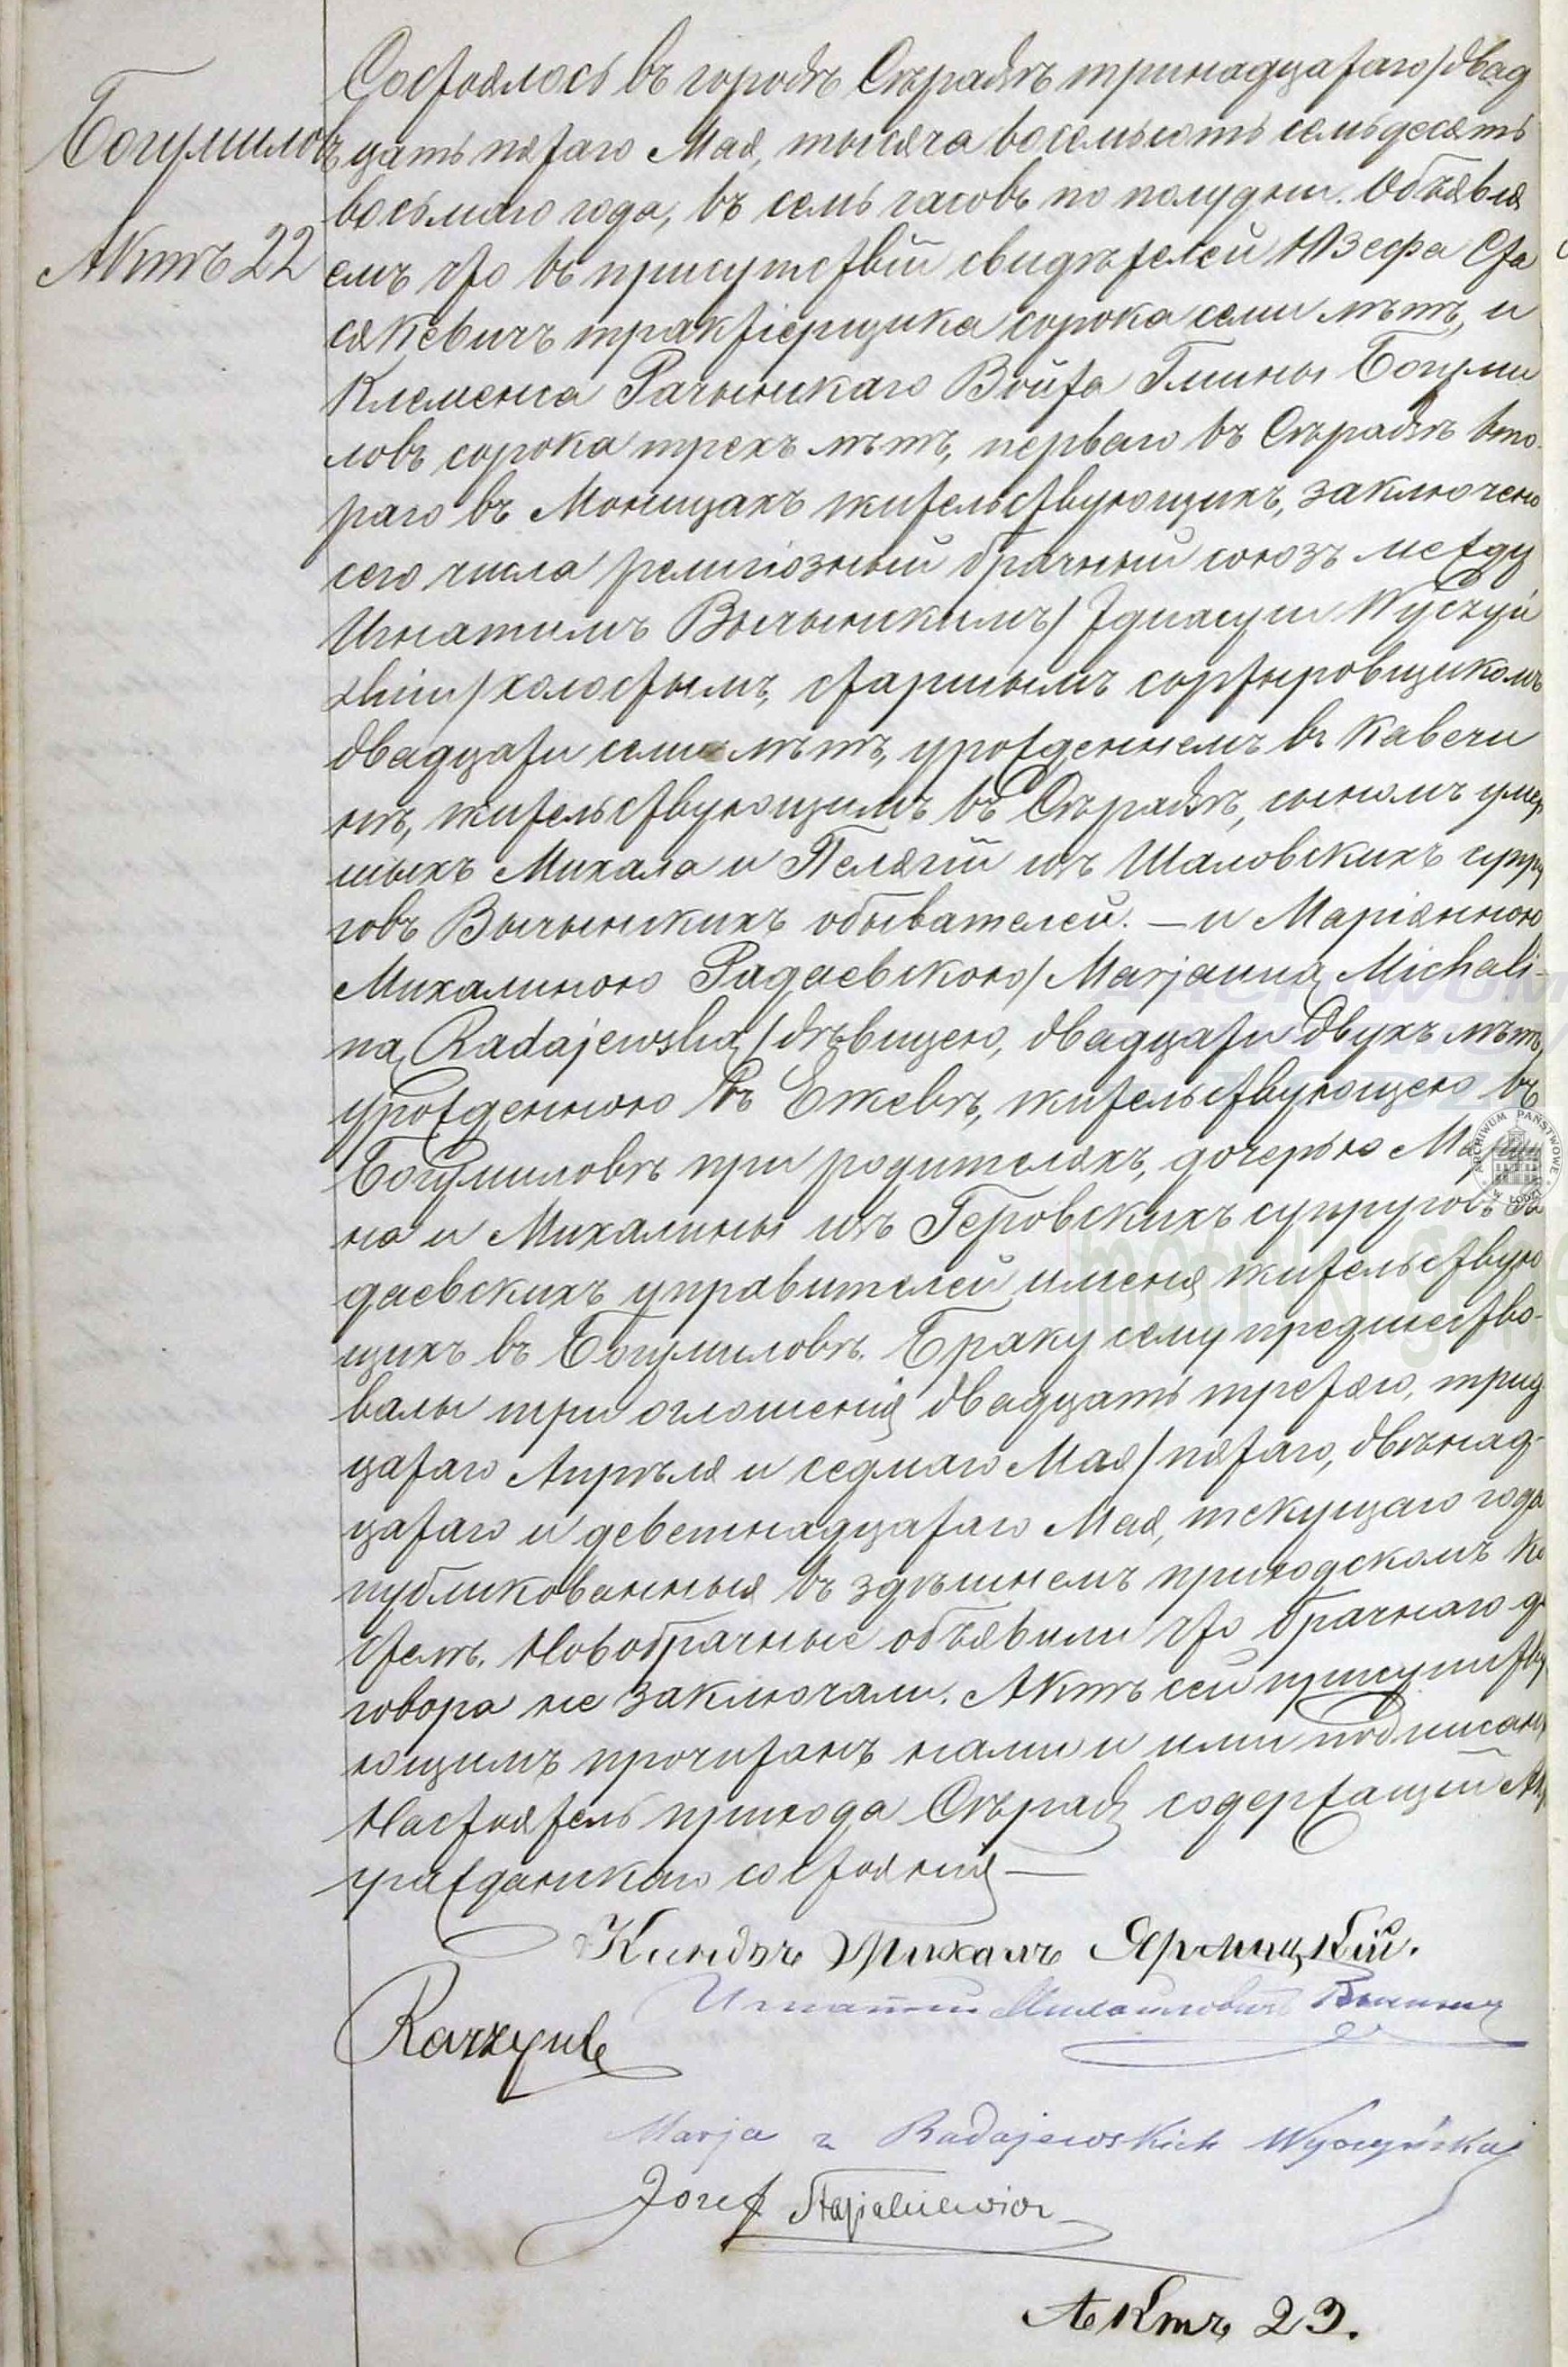 Состоялось въ городѣ Сѣрадзѣ тринадцатаго/двад
Богумиловъ
цать пятаго Мая, тысяча восемьсотъ семьдесятъ
восьмаго года, въ семь часовъ по полудни. Объявля
Актъ 22
емъ что въ присутствіи свидѣтелей Юзефа Ста
сякевичъ трактіерщика сорока семи лѣтъ, и
Клеменса Рачынскаго Войта Гмины Богуми
ловъ сорока трехъ лѣтъ, перваго въ Сѣрадзѣ вто
раго въ Моницахъ жительствующихъ, заключено
сего числа религіозный брачный союзъ между
Игнатимъ Вычынскимъ/Ignacym Wyczyń
skim/холостымъ, старшымъ сортыровщикомъ
двадцати семи лѣтъ, урожденнемъ въ Кавечи
нѣ, жительствующимъ въ Сѣрадзѣ, сыномъ умер
шыхъ Михала и Пелягіи изъ Шаловскихъ супру
говъ Вычынскихъ обывателей. — и Маріянною
Михалиною Радаевскою/Marjanną Michali-
ną Radajewską/дѣвицею, двадцати двухъ лѣтъ,
урожденною въ Ежевѣ, жительствующею въ
Богумиловѣ при родителяхъ, дочерью
на и Михалины изъ Геровскихъ супруговъ Ра
даевскихъ управителей именія жительствую
щихъ въ Богумиловѣ. Браку сему предшество-
валы три оглошенія двадцать третяго, трид
цатаго Апрѣля и седмаго Мая/пятаго, двѣнад-
цатаго и деветнадцатаго Мая, текущаго года
публикованныя въ здѣшнемъ приходскомъ Ко
стелѣ. Новобрачные объявили что брачнаго до
говора не заключали. Актъ сей присутству
ющимъ прочитанъ нами и ими подписанъ
Настоятель прихода Сѣрадз содержащій Акты
гражданскаго состоянія —
Ксіондзъ Михалъ Ярмицкій.
Игнатій Михаиловичъ
Raczyńs
Marja z Radajewskich Wyczyńska
Jozef Stasiakiewicz
Актъ 23.
ARCHIWUM PAŃSTWOWE W ŁODZI